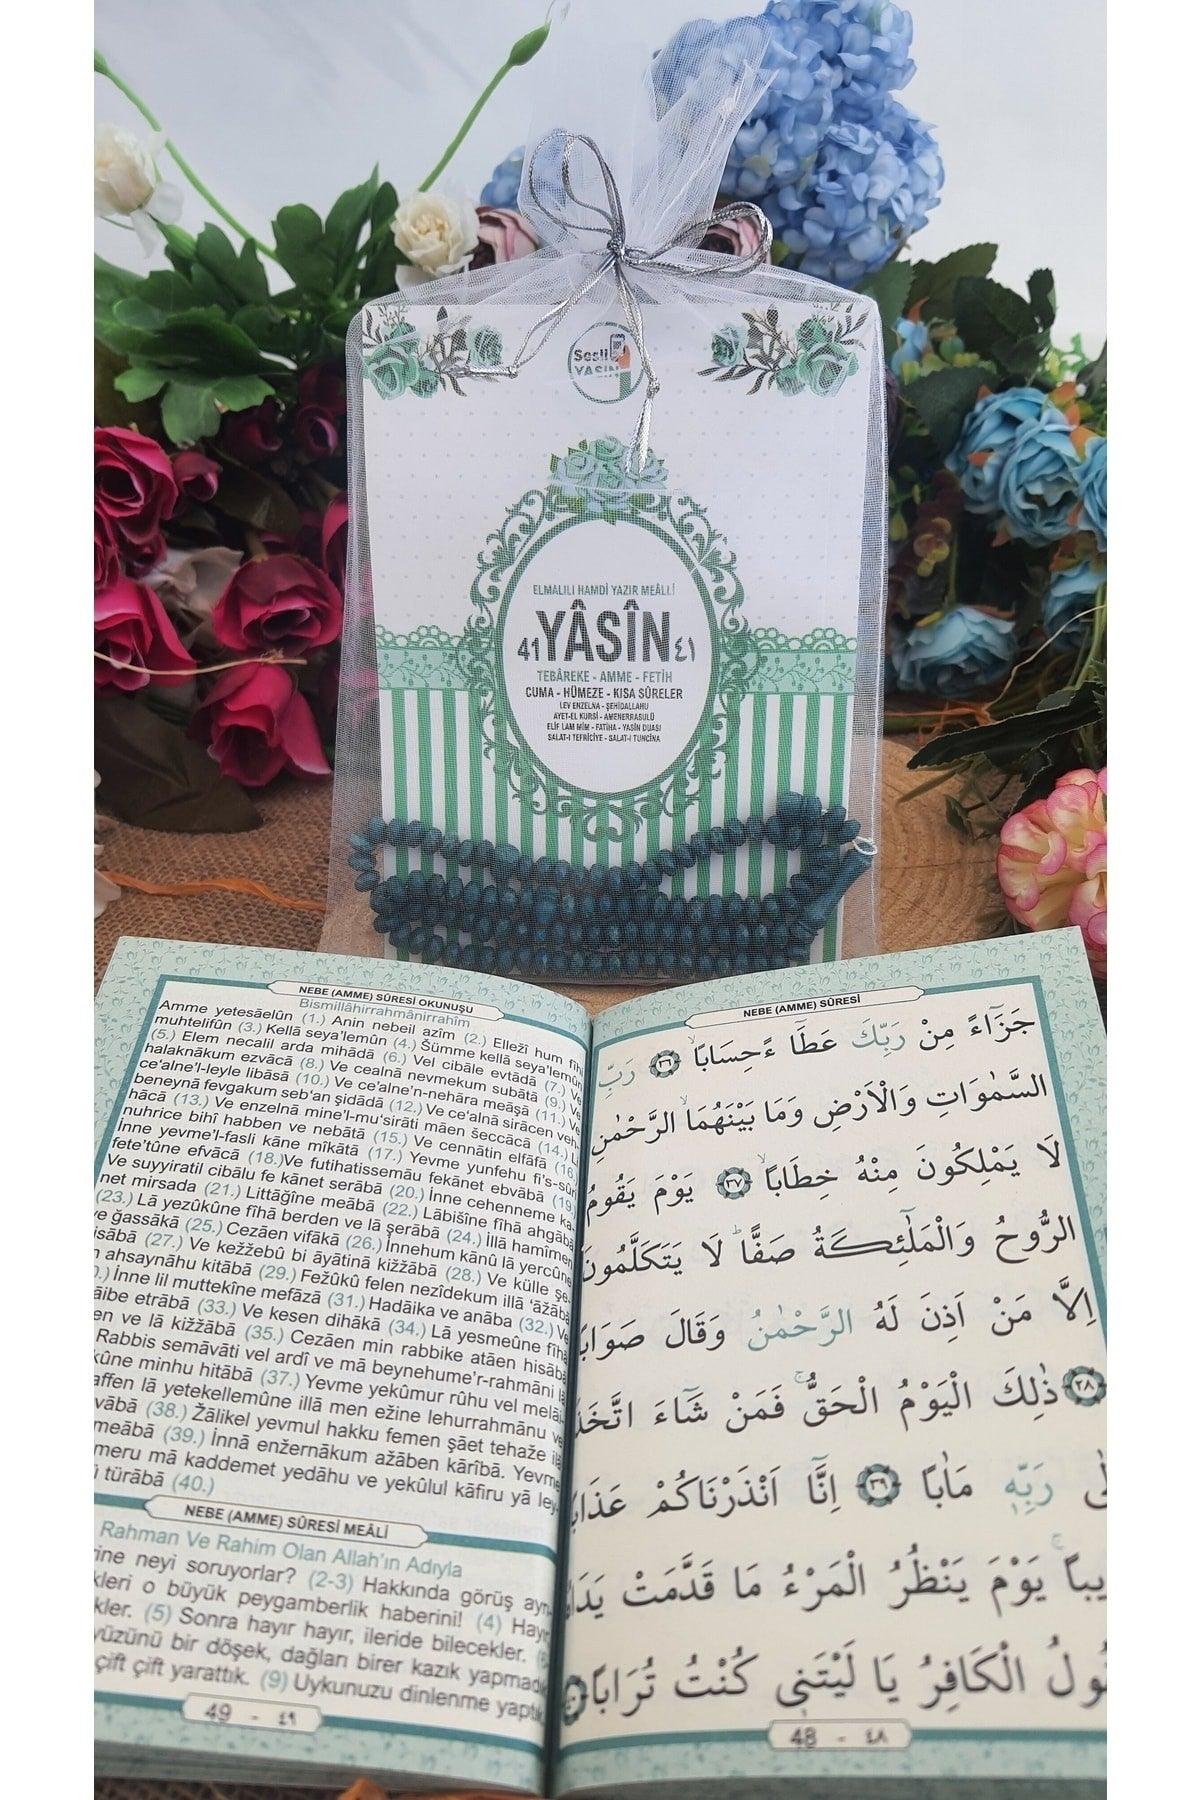 Sesli
YASIN
ELMALILI HAMDİ YAZIR MEÂLLİ
41 YÂSÎN ٤١
TEBÂREKE - AMME - FETİH
CUMA - HÜMEZE - KISA SÛRELER
LEV ENZELNA - ŞEHİDALLAHU
AYET-EL KURSİ - AMENERRASULÜ
ELİF LAM MİM - FATİHA - YASİN DUASI
SALAT-I TEFRİCİYE - SALAT-I TUNCİNA
NEBE (AMME) SÛRESİ OKUNUŞU
Bismillâhirrahmânirrahîm
Amme yetesāelûn (1.) Anin nebeil azîm (2.) Elležî hum fîhi
muhtelifûn (3.) Kellā seya'lemûn (4.) Šümme kellā seya'lemûn
(5.) Elem necalil arda mihādā (6.) Vel cibāle evtādā (7.) Ve
halaknākum ezvācā (8.) Ve cealnā nevmekum subātā (9.) Ve
ce'alne'l-leyle libāsā (10.) Ve ce'alne'n-nehāra meāşā (11.) Ve
beneynā fevgakum seb'an şidādā (12.) Ve ce'alnā sirācen veh-
hācā (13.) Ve enzelnā mine'l-mu'sirāti māen šeccācā (14.) Li
nuhrice bihî habben ve nebātā (15.) Ve cennātin elfāfā (16.)
İnne yevme'l-fasli kāne mîkātā (17.) Yevme yunfehu fi's-sûri
fete'tûne efvācā (18.)Ve futihatissemāu fekānet ebvābā (19.)
Ve suyyiratil cibālu fe kānet serābā (20.) İnne cehenneme kā-
net mirsada (21.) Littāğîne meābā (22.) Lābišîne fîhā ahgābā
(23.) Lā yezûkûne fîhā berden ve lā şerābā (24.) İllā hamîmen
ve ğassākā (25.) Cezāen vifākā (26.) İnnehum kānû lā yercûne
hisābā (27.) Ve kežžebû bi āyātinā kižžābā (28.) Ve külle şe-
ahsaynāhu kitābā (29.) Fežûkû felen nezîdekum illā 'āžābā
İnne lil muttekîne mefāzā (31.) Hadāika ve anāba (32.) Ve
etrābā (33.) Ve kesen dihākā (34.) Lā yesmeûne fîhā
ve lā kižžābā (35.) Cezāen min rabbike atāen hisābā
Rabbis semāvāti vel ardî ve mā beynehume'r-rahmāni lā
minhu hitābā (37.) Yevme yekûmur rûhu vel melāi-
lā yetekellemûne illā men ežine lehurrahmānu ve
(38.) Žālikel yevmul hakku femen şāet tehaže ilā
meābā (39.) İnnā enžernākum ažāben kārîbā. Yevme
mā kaddemet yedāhu ve yekûlul kāfiru yā ley-
türābā (40.)
NEBE (AMME) SÛRESİ MEÂLİ
Rahman Ve Rahim Olan Allah'ın Adıyla
neyi soruyorlar? (2-3) Hakkında görüş ayrı-
o büyük peygamberlik haberini! (4) Hayır
(5) Sonra hayır hayır, ileride bilecekler.
bir döşek, dağları birer kazık yapmadık
çift çift yarattık. (9) Uykunuzu dinlenme yaptık
49 - ٤٩
NEBE (AMME) SÛRESİ
جَزَٓاءً مِنْ رَبِّكَ عَطَٓاءً حِسَابًاۙ ﴿٣٦﴾ رَبِّ
السَّمٰوَاتِ وَالْاَرْضِ وَمَا بَيْنَهُمَاۙ الرَّحْمٰنِ
لَا يَمْلِكُونَ مِنْهُ خِطَابًاۚ ﴿٣٧﴾ يَوْمَ يَقُومُ
الرُّوحُ وَالْمَلٰٓئِكَةُ صَفًّاۜ لَا يَتَكَلَّمُونَ
اِلَّا مَنْ اَذِنَ لَهُ الرَّحْمٰنُ وَقَالَ صَوَابًا
﴿٣٨﴾ ذٰلِكَ الْيَوْمُ الْحَقُّۚ فَمَنْ شَٓاءَ اتَّخَذَ
رَبِّه۪ مَاٰبًا ﴿٣٩﴾ اِنَّٓا اَنْذَرْنَاكُمْ عَذَابًا
يَوْمَ يَنْظُرُ الْمَرْءُ مَا قَدَّمَتْ يَدَاهُ
الْكَافِرُ يَا لَيْتَن۪ي كُنْتُ تُرَابًا
48 - ٤٨